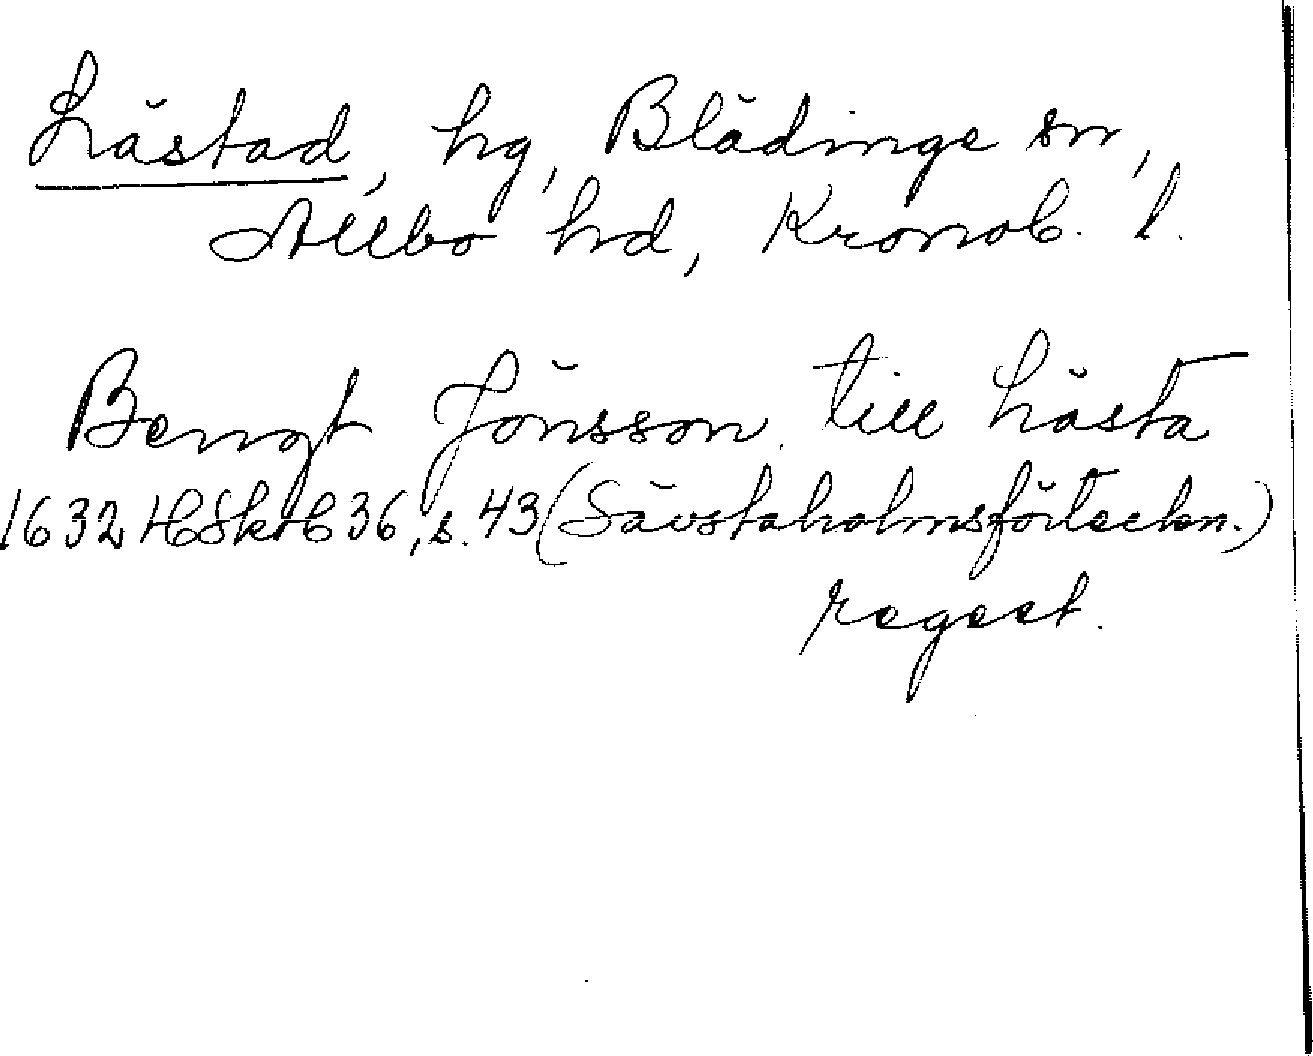 Låstad, hg, Blädinge sn,
Allbo hd, Kronob. l.
Bengt Jönsson till Låsta
1632 HSkH 36, s. 43 (Sävstaholmsförteckn.)
regest.